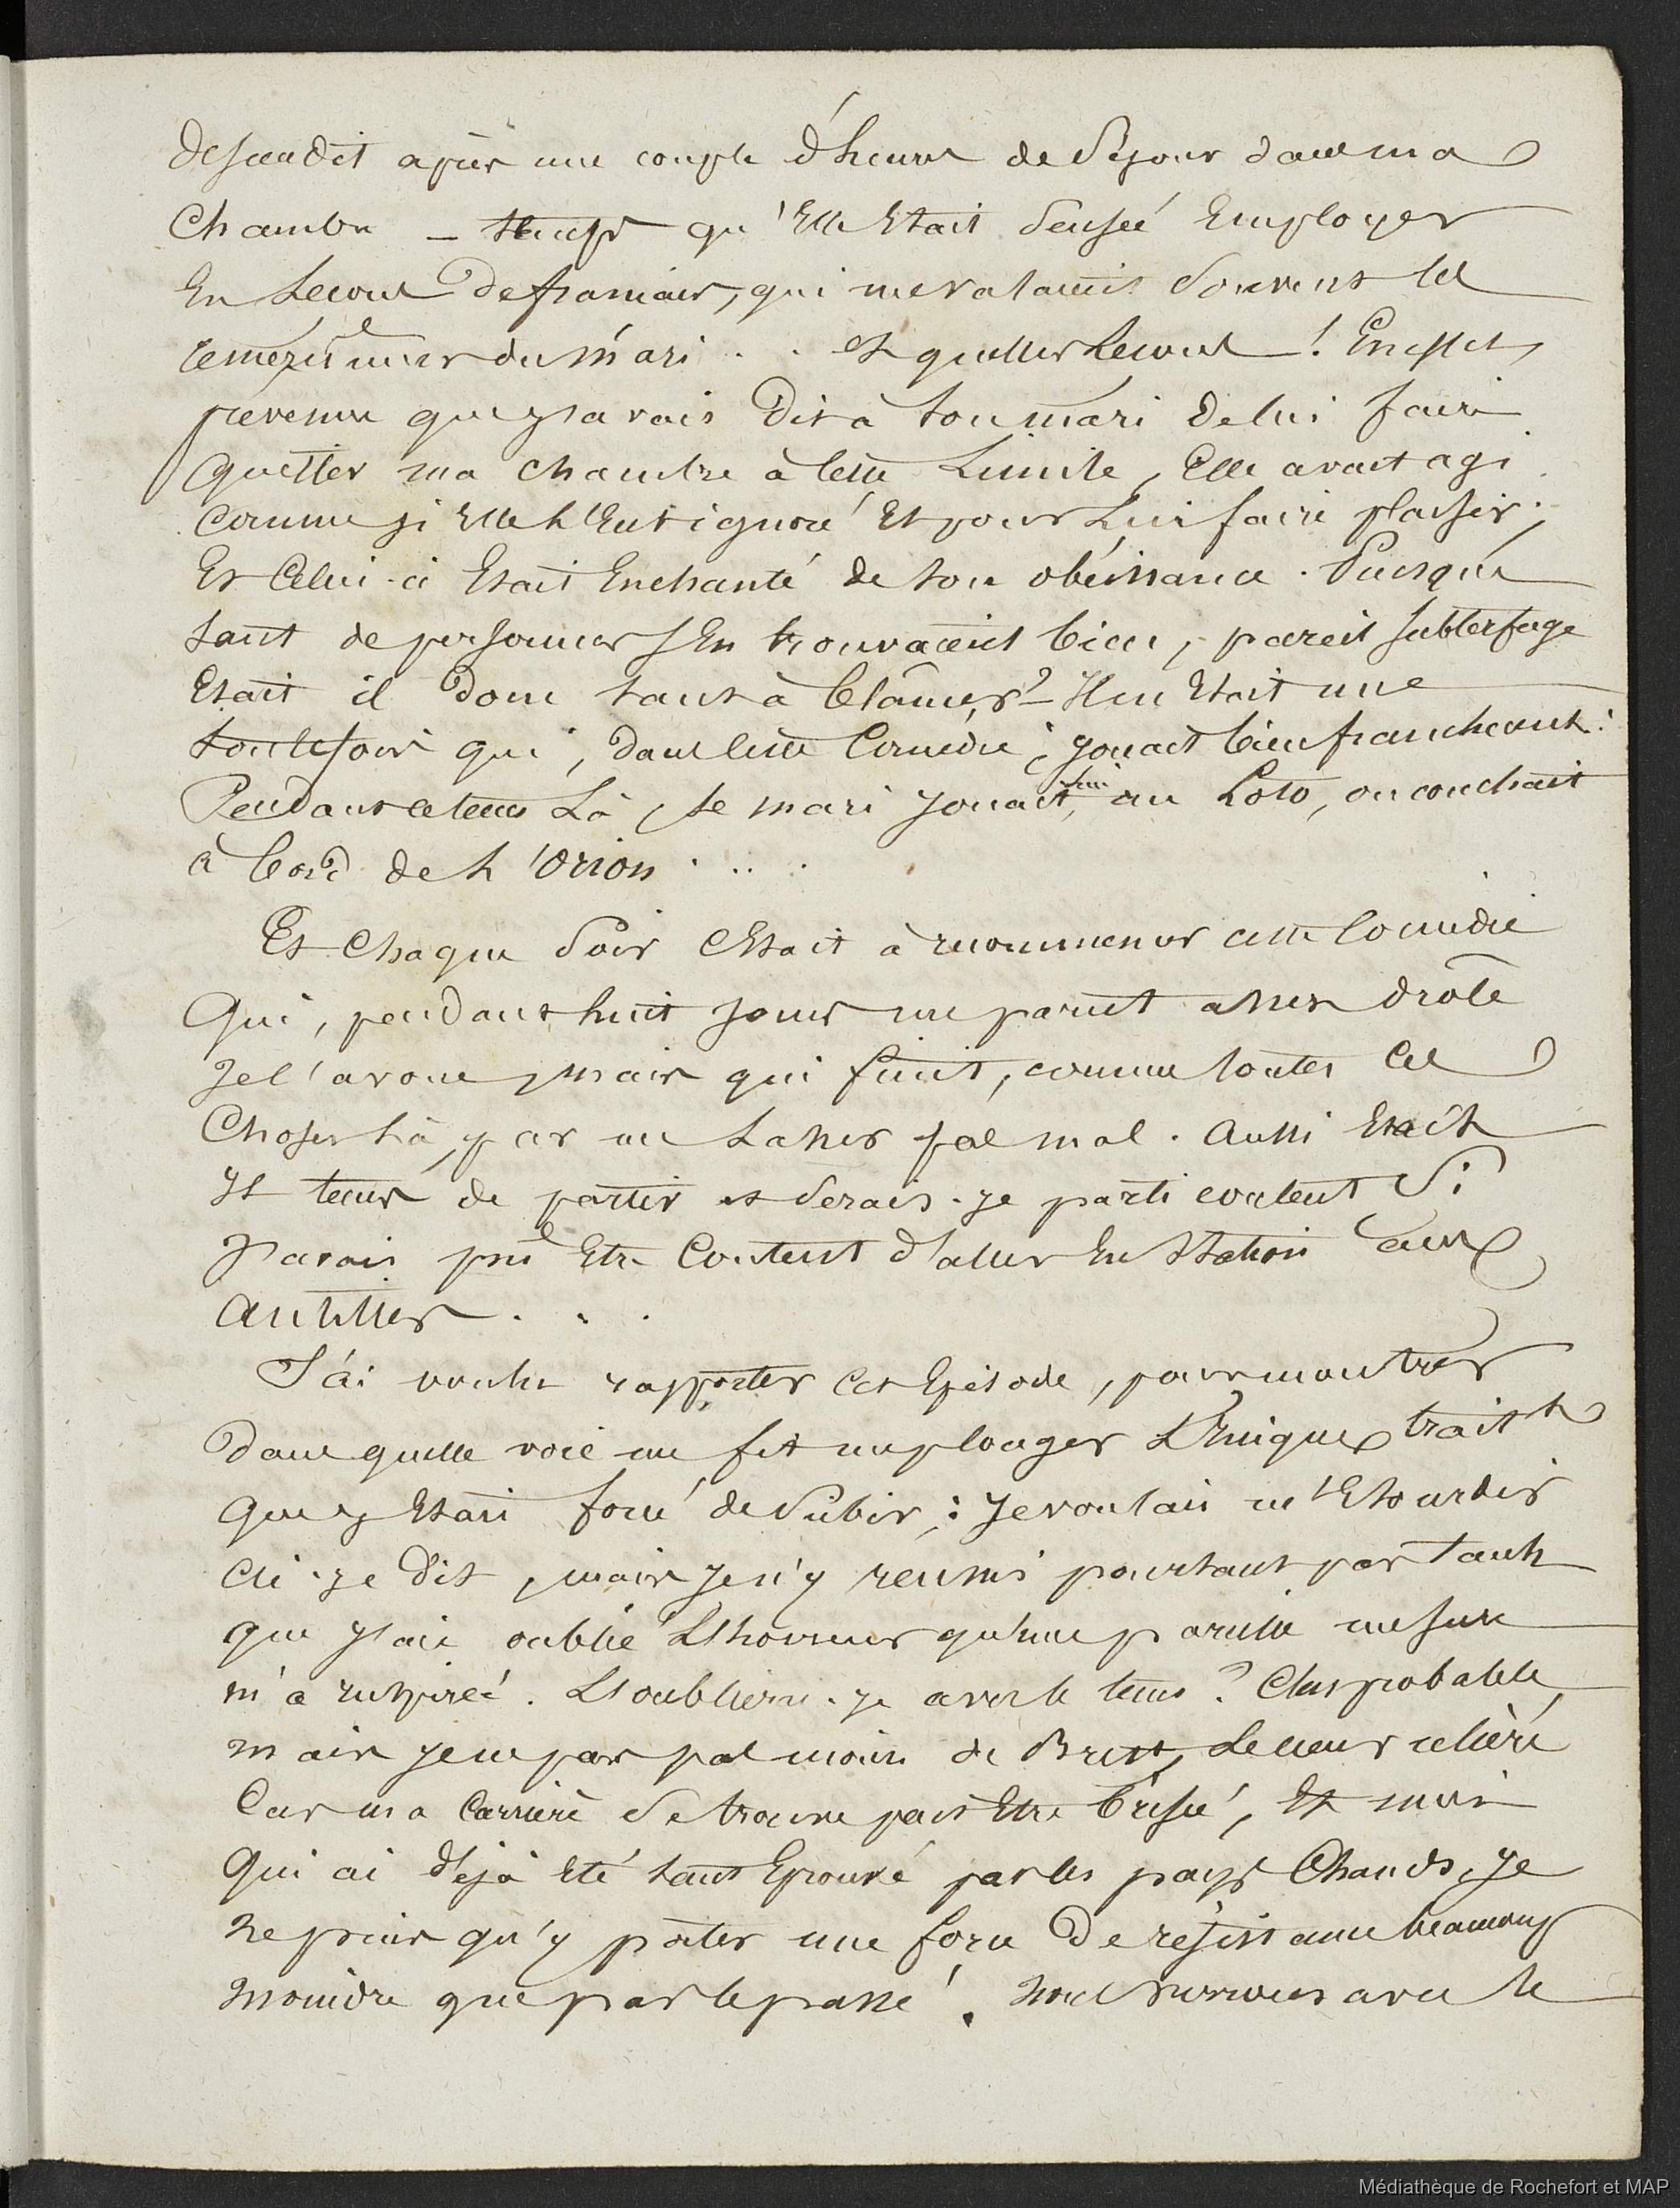 descendit après une couple d'heures de Séjour dans ma
Chambre – temps qu'Elle Etait Sensée Employer
En Lecons de francais, qui me valaient Souvent les
remerciements du mari . . et quelles Lecons ! En effet,
prevenue que j'avais dit à son mari de lui faire
quitter ma chambre à cette Limite, Elle avait agi
comme si Elle l'Eut ignoré Et pour Lui faire plaisir ;
Et Celui-ci Etait Enchanté de son obéissance. Puisque
tant de personnes s'En trouvaient bien, pareil subterfuge
Etait il donc tant à blâmer ? – Il en Etait une
toutefois qui, dans cette Comédie, jouait bien franchement :
Pendant ce tems Là, le mari jouait, lui au Loto, ou couchait
à bord de l'Orion . . . .
Et chaque Soir c'Etait à recommencer cette Comédie
Qui, pendant huit jours me parut assez drole
Je l'avoue, mais qui finit, comme toutes ces
Choses là, par me lasser pas mal. Aussi Etait
Il tems de partir et Serais-je parti content Si
J'avais pu Etre Content d'aller En Station aux
Antilles . . .
J'ai voulu rapporter cet Episode, pour montrer
dans quelle voie me fit me plonger L'Inique trait^t
que j'Etais forcé de Subir ; Je voulais m'Etourdir
ai-je dit, mais je n'y reussis pourtant pas tant
que j'aie oublié L'horreur qu'une pareille mesure
m'a inspirée. L'oublierai-je avec le tems ? C'est probable,
mais je ne pars pas moins de Brest, Le cœur ulcéré
Car ma Carrière Se trouve peut Etre brisée, Et moi
Qui ai déjà Eté tant Eprouvé par les pays Chauds, Je
ne puis qu'y porter une force de résistance beaucoup
moindre que par le passé ! Nous verrons avec le